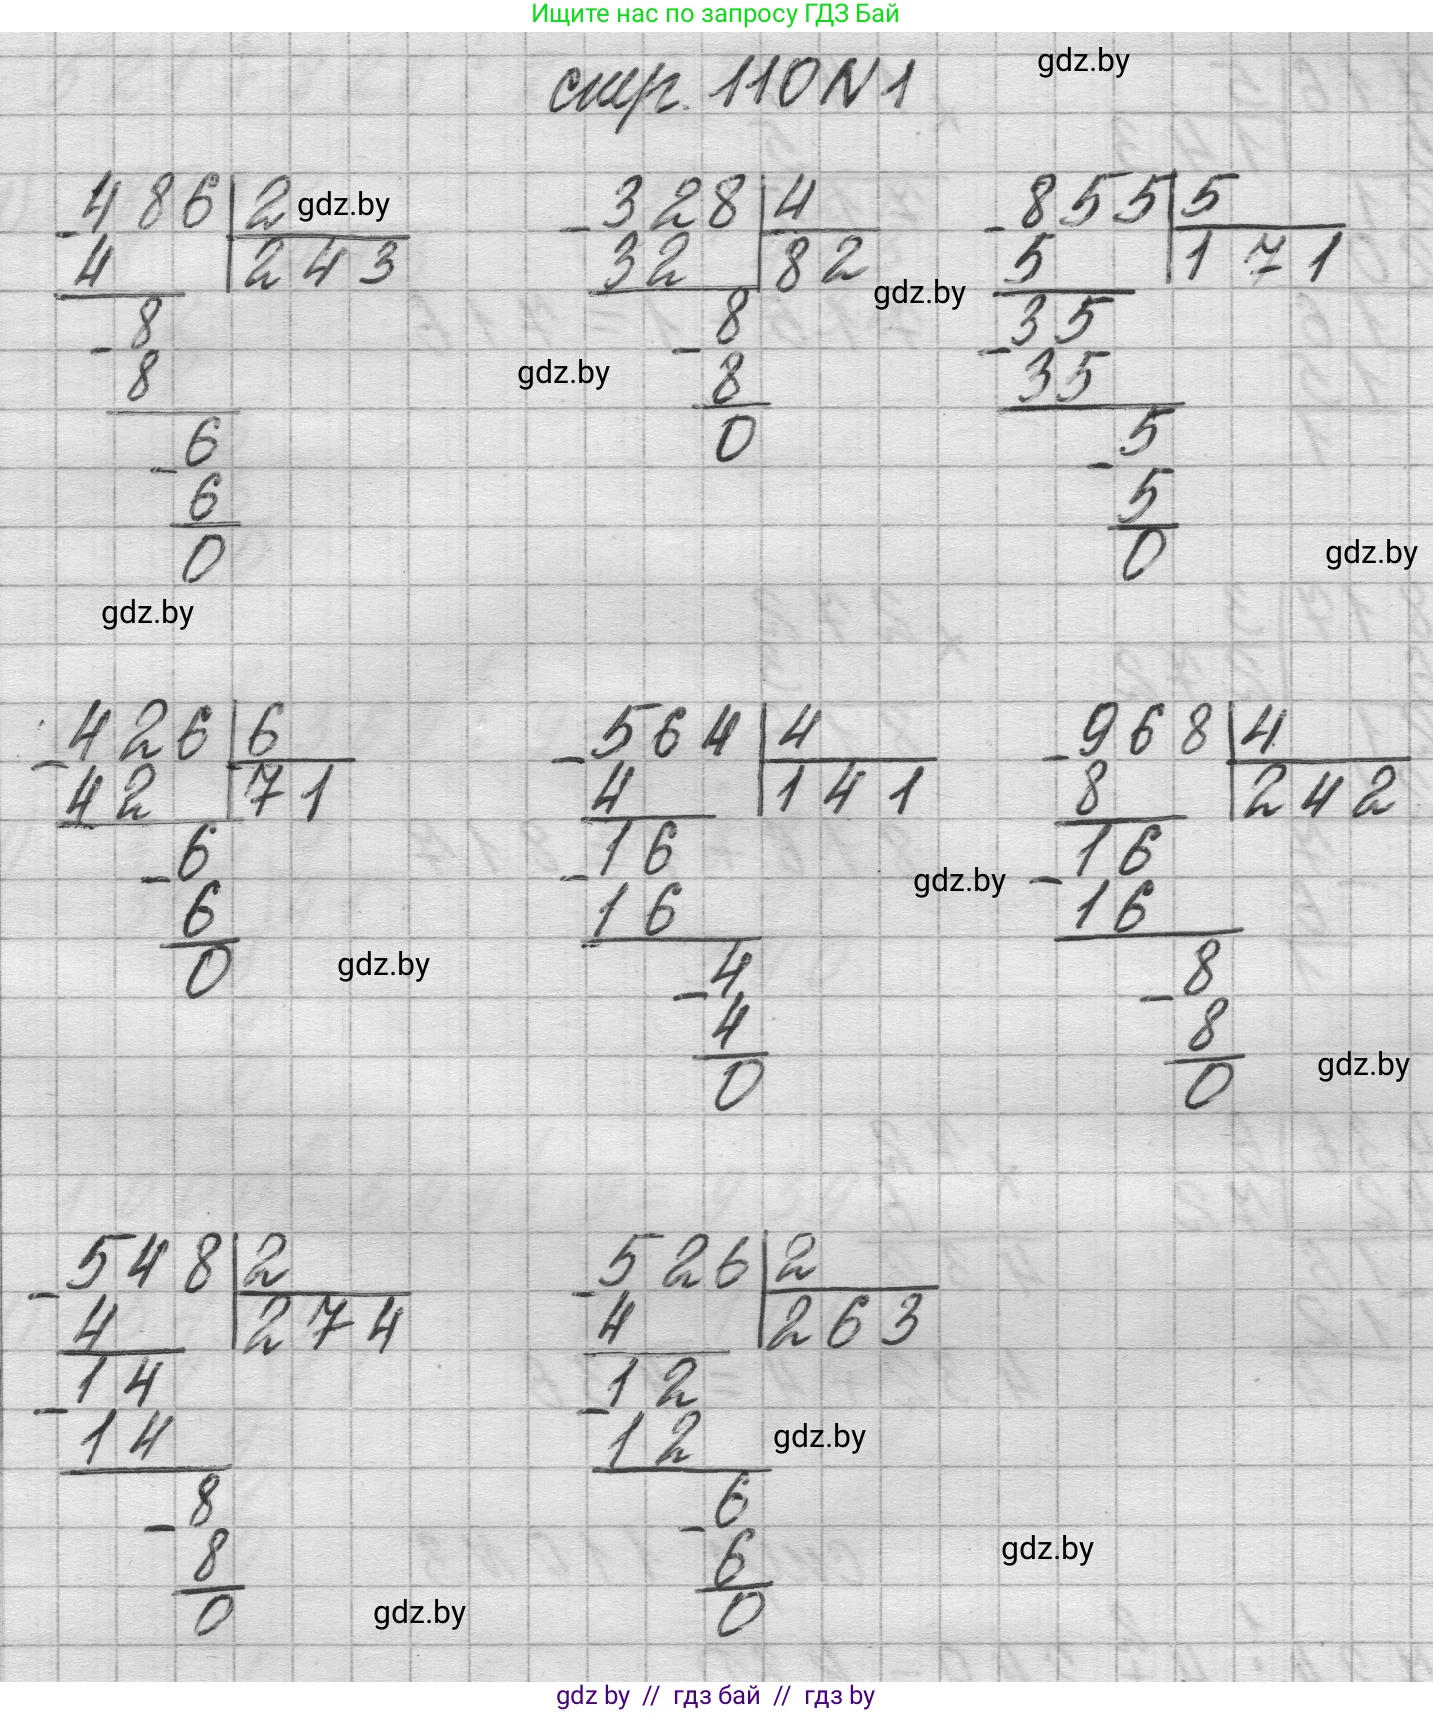 Ищите нас по запросу ГДЗ Бай
gdz.by
стр. 110 N 1
486 2 gdz.by 328 4 855 5
4 243 32 82 5 171
gdz.by
8 8 35
gdz.by
8 8 35
6 0 5
6 5
0 0
gdz.by
gdz.by
426 6 564 4 968 4
42 71 4 141 8 242
6 16 16
gdz.by
6 16 16
0 4 8
gdz.by
4 8
0 0
gdz.by
548 2 526 2
4 274 4 263
14 12
14 12
gdz.by
8 6
8 6
gdz.by
0 0
gdz.by
gdz by // гдз бай // гдз by